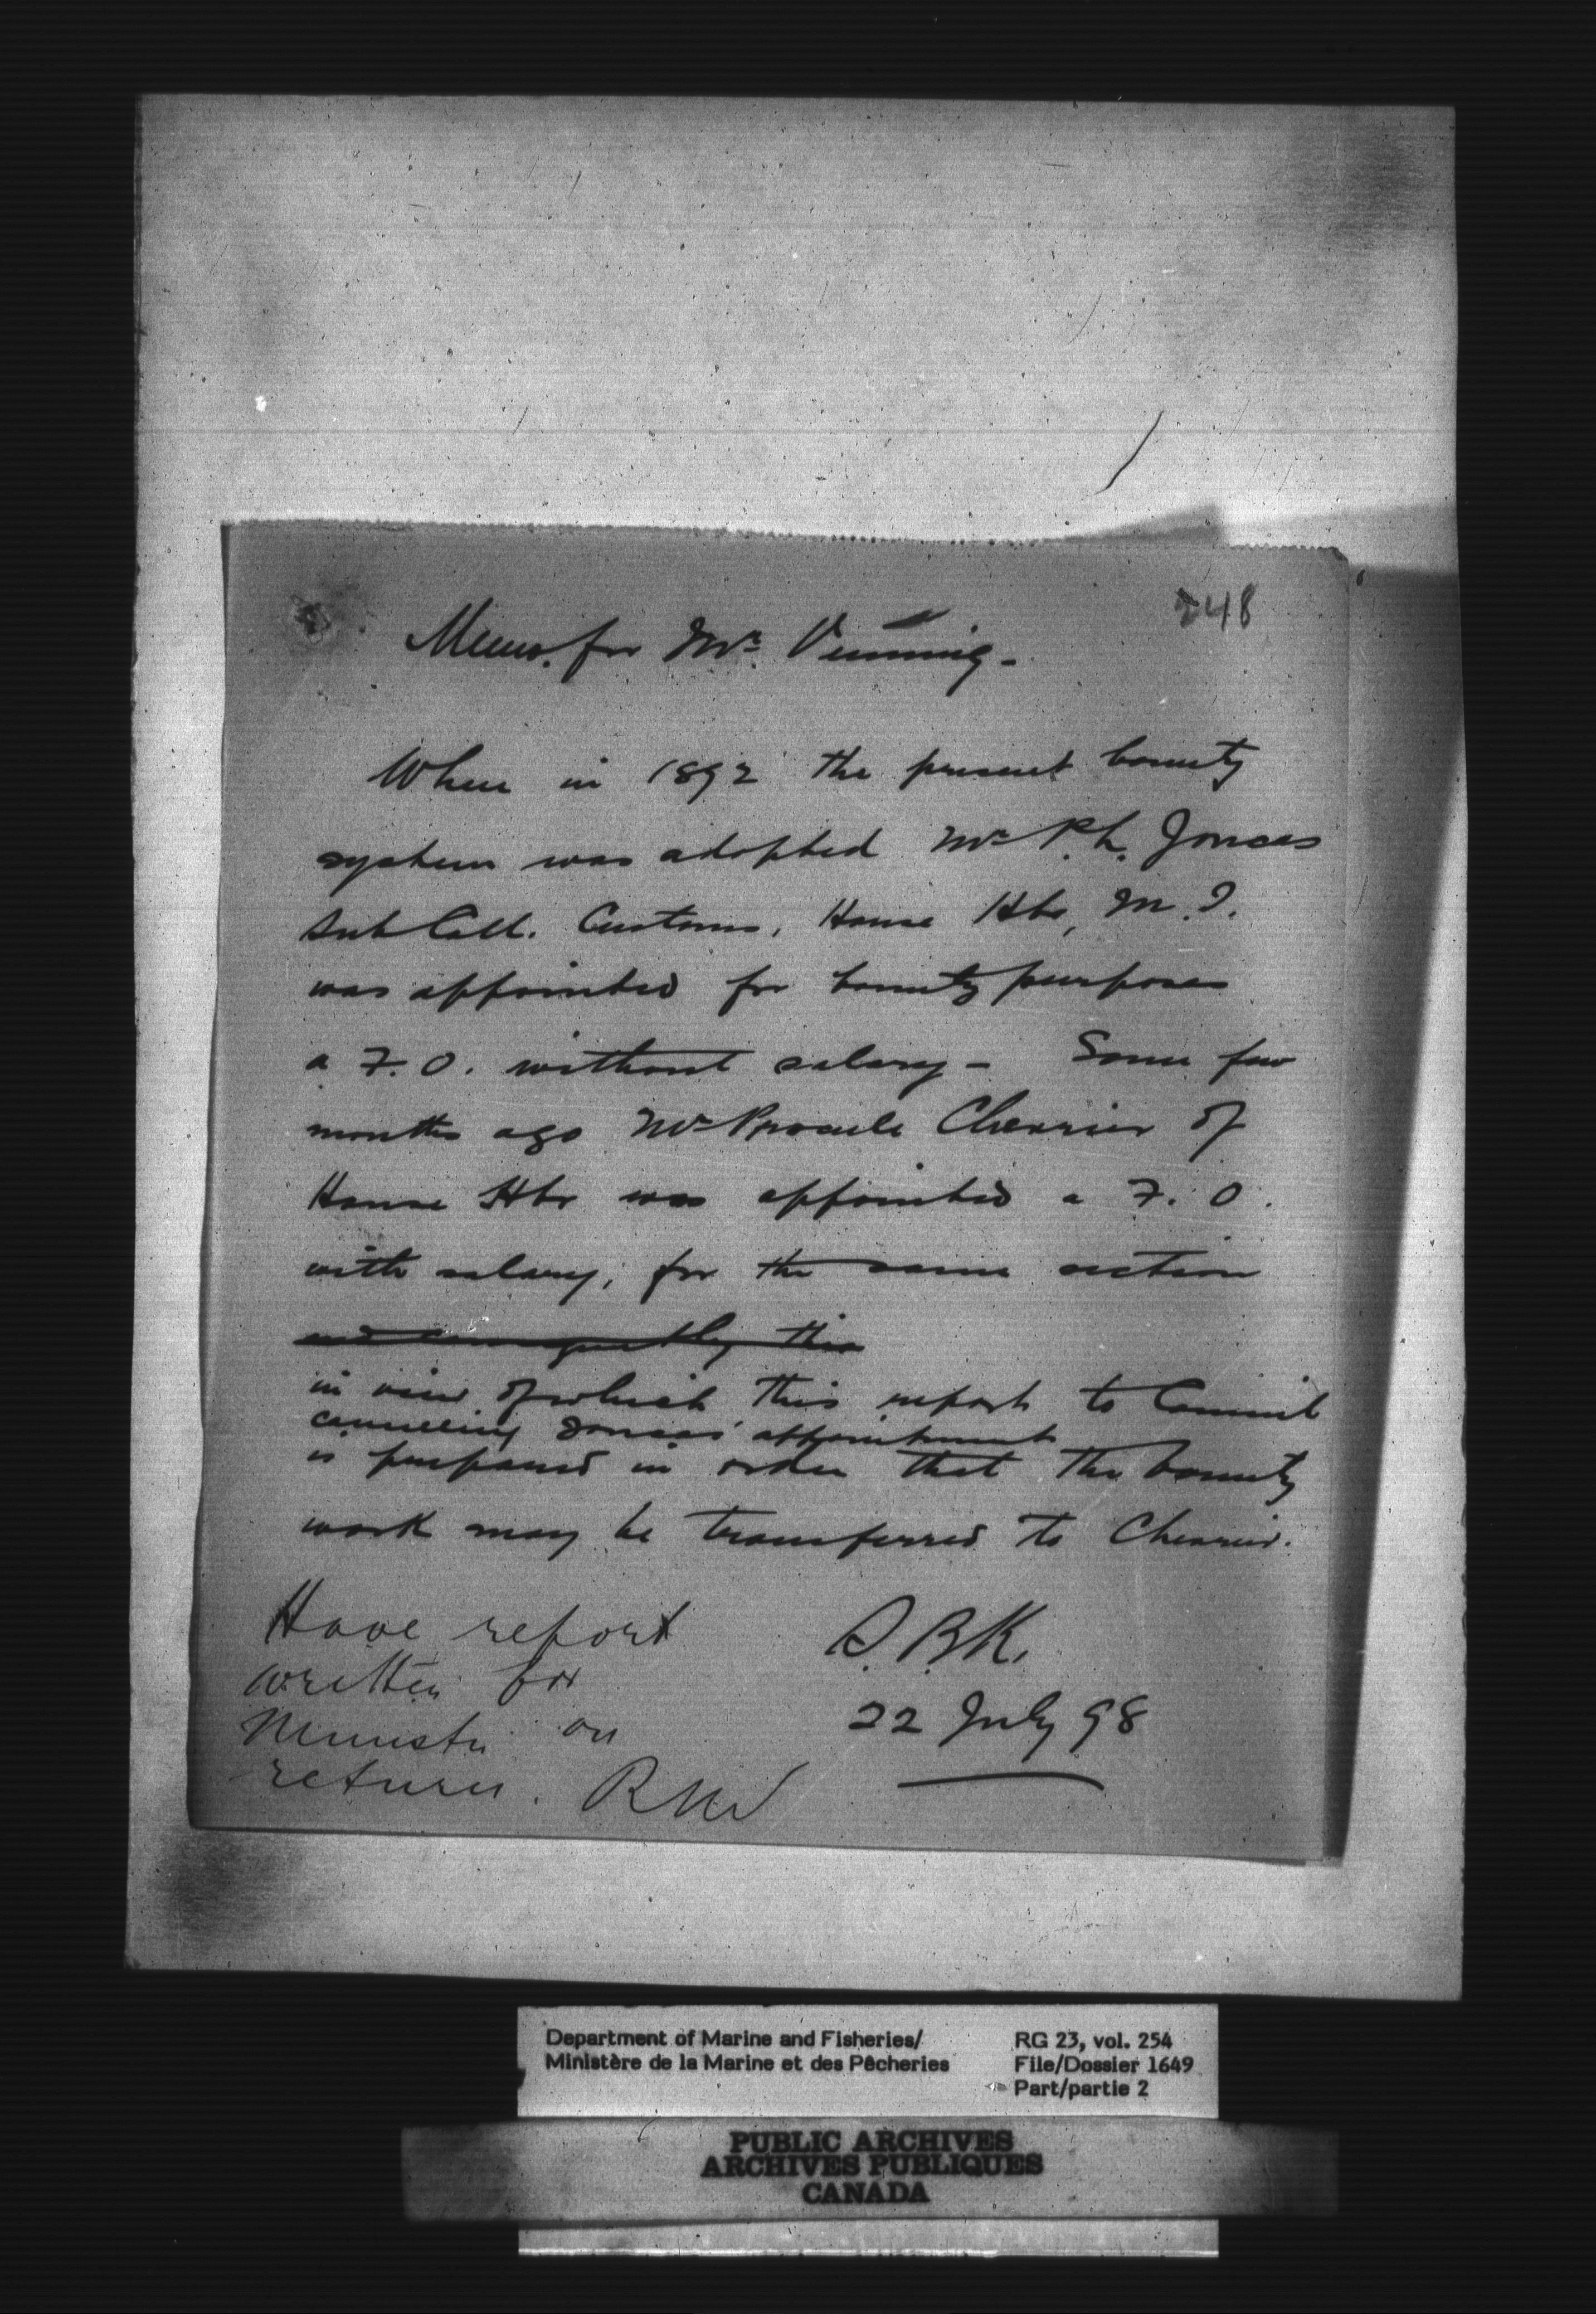 248
Memo. for Mr. Venning.
When in 1892 the present bounty
system was adopted Mr. P. L. Joncas
Sub Coll. Customs, House Hbr, M. I.
was appointed for bounty purposes
a F. O. without salary - Some few
months ago Mr Procule Chevrier of
House Hbr was appointed a F. O.
with salary, for the same section
and consequently this
in view of which this report to Council
cancelling Joncas' appointment
is prepared in order that the bounty
work may be transferred to Chevrier.
Have report
written for
Minister on
return. RNV
S. B. K.
22 July 98
Department of Marine and Fisheries/
Ministère de la Marine et des Pêcheries
RG 23, vol. 254
File/Dossier 1649
Part/partie 2
PUBLIC ARCHIVES
ARCHIVES PUBLIQUES
CANADA